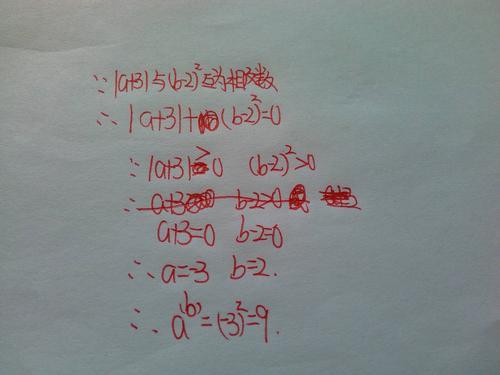 ∵|a+3|与(b-2)²互为相反数
∴|a+3|+(b-2)²=0
∵|a+3|>0 (b-2)²>0
∴ b-2>0
a+3=0 b-2=0
∴a=-3 b=2.
∴a^(b)=(-3)²=9.